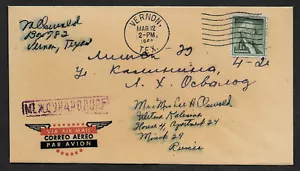 M Oswald
Box 982
Vernon, Texas
VERNON,
MAR 12
2-PM
TEX.
Минск - 29
У. Калинина, 4-24
Л. Х. Освальд
МЕЖДУНАРОДНОЕ
VIA AIR MAIL
CORREO AEREO
PAR AVION
Mr + Mrs Lee H. Oswald
Kalinina
House 4, Apartment 24
Minsk 29
Russia